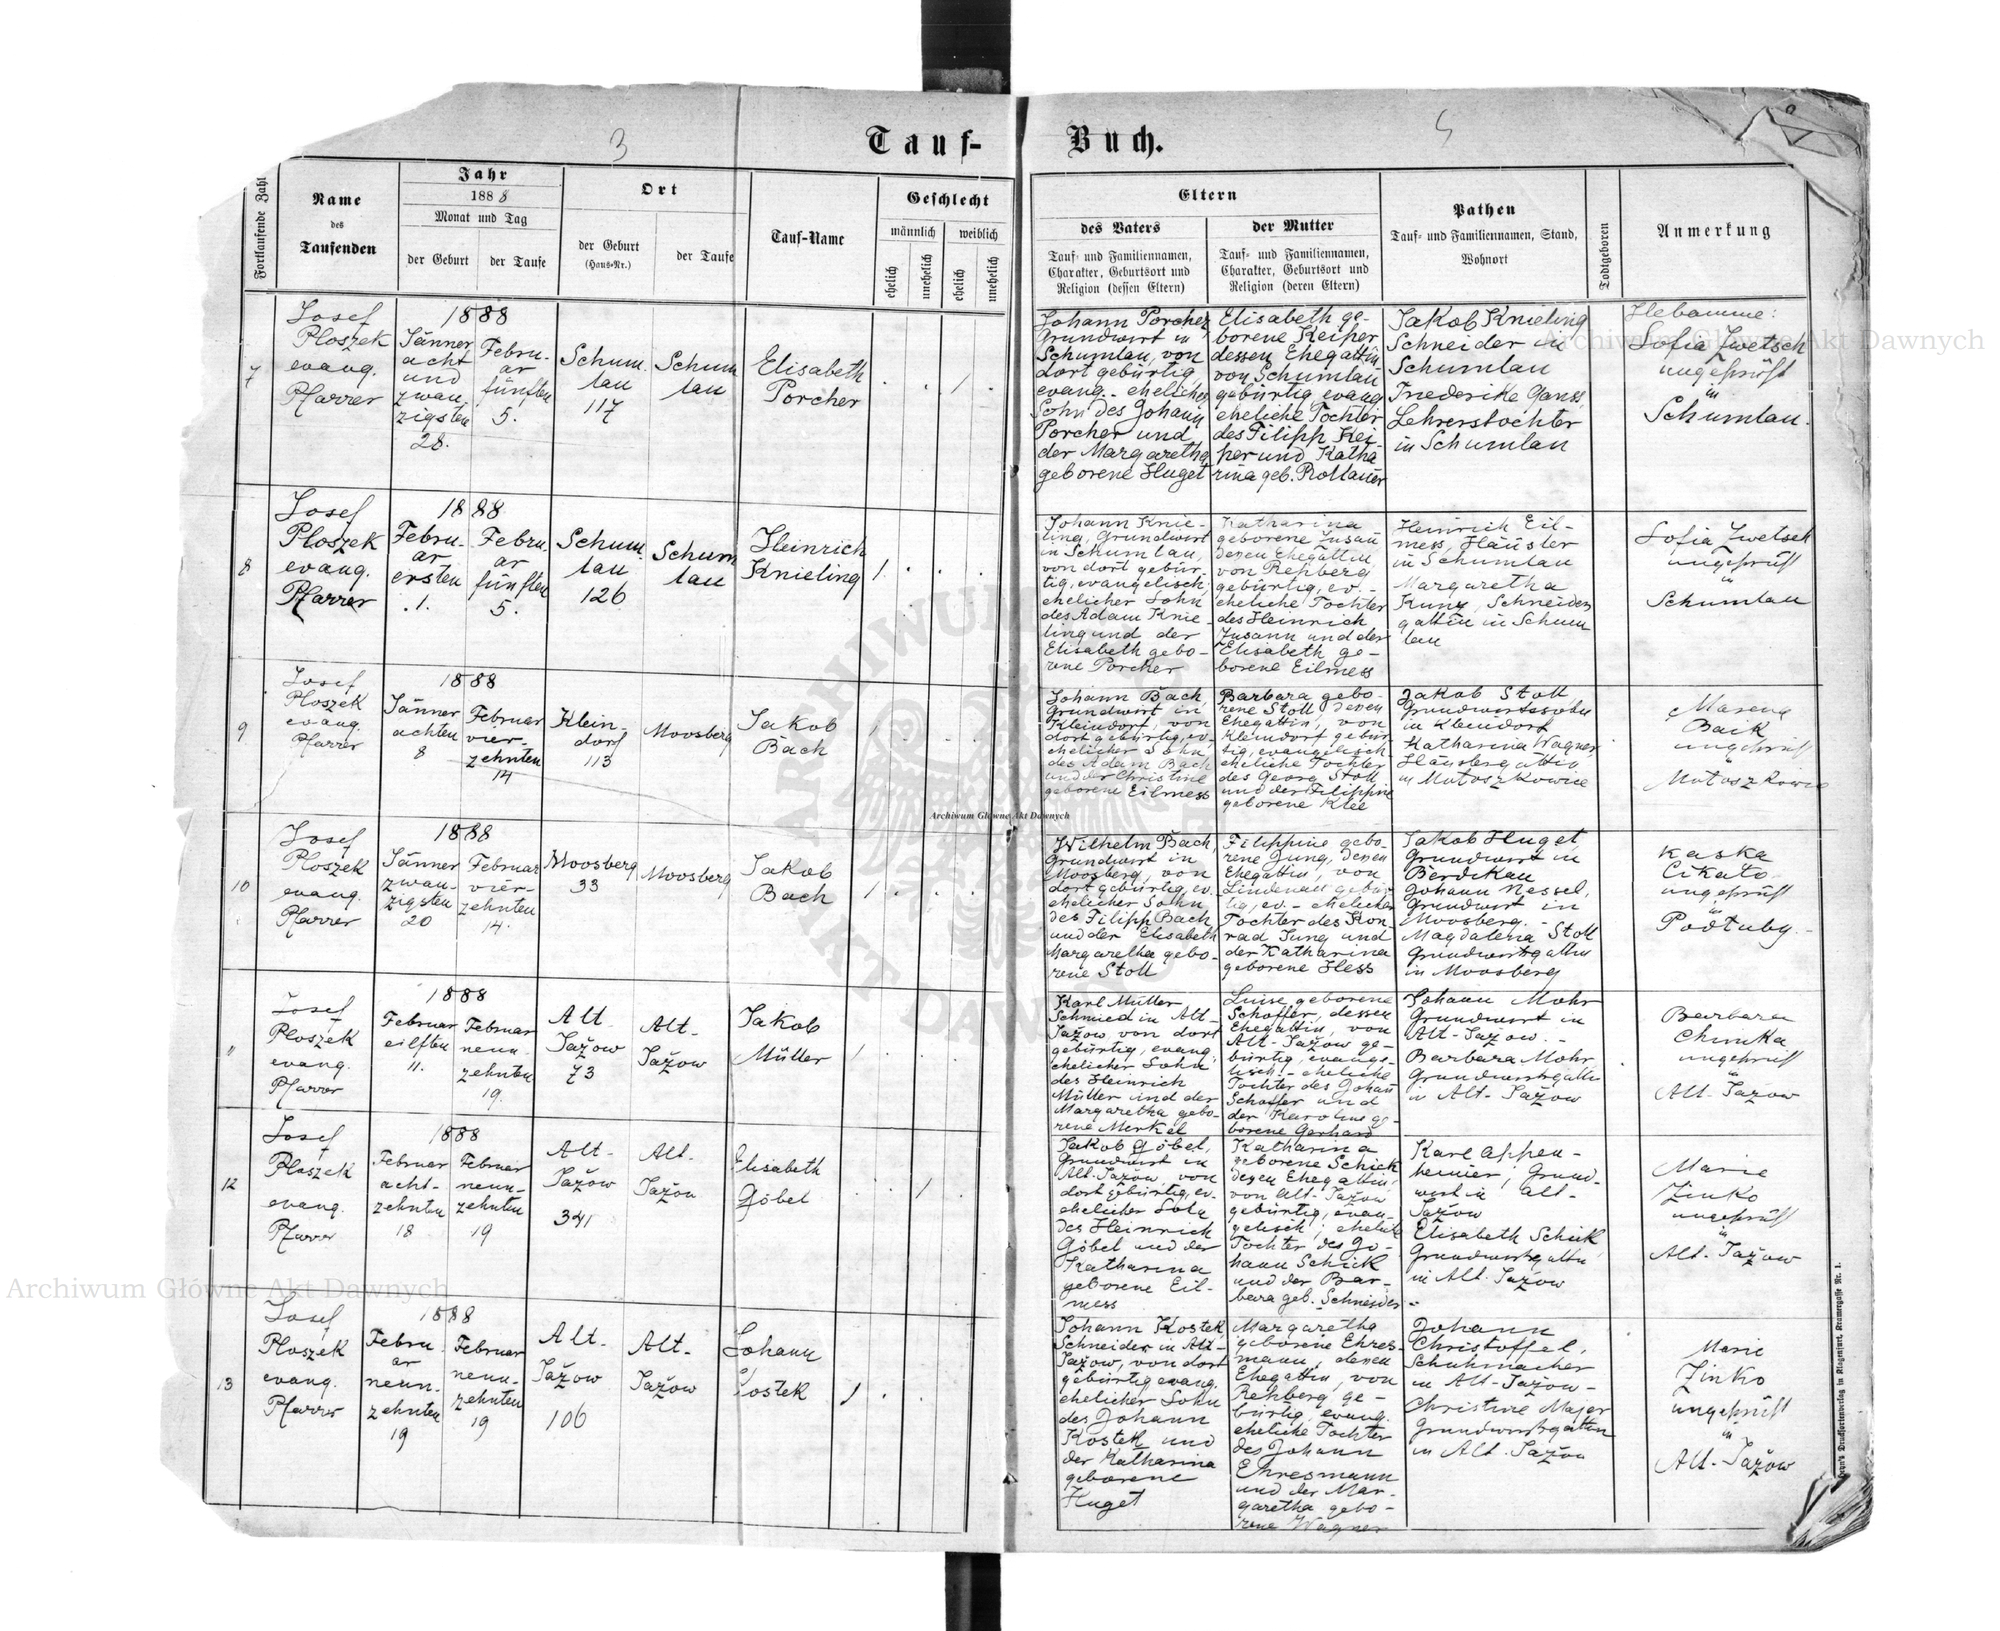 3
Tauf-
Buch.
Fortlaufende Zahl
Name
des
Taufenden
Jahr
1888
Monat und Tag
der Geburt
der Taufe
Ort
der Geburt
(Haus-Nr.)
der Taufe
Tauf-Name
Geschlecht
männlich
weiblich
ehelich
unehelich
ehelich
unehelich
Eltern
des Vaters
Tauf- und Familiennamen,
Charakter, Geburtsort und
Religion (dessen Eltern)
der Mutter
Tauf- und Familiennamen,
Charakter, Geburtsort und
Religion (deren Eltern)
Pathen
Tauf- und Familiennamen, Stand,
Wohnort
Todtgeboren
Anmerkung
7
Josef
Ploszek
evang.
Pfarrer
1888
Jänner
acht
und
zwan
zigsten
28.
Febru-
ar
fünften
5.
Schum
lau
117
Schum
lau
Elisabeth
Porcher
1
Johann Porcher
Grundwirt in
Schumlau, von
dort gebürtig
evang. ehelicher
Sohn des Johann
Porcher und
der Margaretha
geborene Huget
Elisabeth ge-
borene Keiper
dessen Ehegattin
von Schumlau
gebürtig evang
eheliche Tochter
des Filipp Kei-
per und Katha
rina geb. Rollauer
Jakob Knieling
Schneider in
Schumlau
Friederike Ganss
Lehrerstochter
in Schumlau
Hebamme:
Sofia Zwetsch
ungeprüft
in
Schumlau.
8
Josef
Ploszek
evang.
Pfarrer
1888
Febru-
ar
ersten
.1.
Febru
ar
fünften
5.
Schum.
lau
126
Schum
lau
Heinrich
Knieling
1.
Johann Knie-
ling, Grundwirt
in Schumlau,
von dort gebür-
tig, evangelisch
ehelicher Sohn
des Adam Knie-
ling und der
Elisabeth gebo-
rene Porcher
Katharina
geborene Zusann
deren Ehegattin
von Rehberg
gebürtig, ev. -
eheliche Tochter
des Heinrich
Zusann und der
Elisabeth ge-
borene Eilmess
Heinrich Eil-
mess, Häusler
in Schumlau
Margaretha
Kunz, Schneiders
gattin in Schum
lau
Sofia Zwetsch
ungeprüft
in
Schumlau
9
Josef
Ploszek
evang.
Pfarrer
1888
Jänner
achten
8
Februar
vier-
zehnten
14
Klein-
dorf
113
Moosberg
Jakob
Bach
1
Johann Bach
Grundwirt in
Kleindorf, von
dort gebürtig, ev.
ehelicher Sohn
des Adam Bach
und der Christine
geborene Eilmess
Barbara gebo-
rene Stoll deren
Ehegattin, von
Kleindorf gebür
tig, evangelisch
eheliche Tochter
des Georg Stoll
und der Filippine
geborene Klee
Jakob Stoll
Grundwirtssohn
in Kleindorf
Katharina Wagner
Häuslergattin
in Mutoszkowice
Maryna
Baik
ungeprüft
in
10
Josef
Ploszek
evang.
Pfarrer
1888
Jänner
zwan-
zigsten
20
Februar
vier-
zehnten
14.
Moosberg
33
Moosberg
Jakob
Bach
1.
Wilhelm Bach,
Grundwirt in
Moosberg, von
dort gebürtig, ev.
ehelicher Sohn
des Filipp Bach
und der Elisabeth
Margaretha gebo-
rene Stoll
Filippine gebo-
rene Jung, deren
Ehegattin, von
Lindenau gebür
tig, ev. - eheliche
Tochter des Kon
rad Jung und
der Katharina
geborene Hess
Jakob Huget
Grundwirt in
Berdikau
Johann Nessel,
Grundwirt in
Moosberg. -
Magdalena Stoll
Grundwirtsgattin
in Moosberg
Kaska
Cikato
ungeprüft
in
Podtuby. -
11
Josef
Ploszek
evang.
Pfarrer
1888
Februar
eilften
11.
Februar
neun-
zehnten
19.
Alt
Jažow
73
Alt-
Jažow
Jakob
Müller
1
Karl Müller,
Schmied in Alt-
Jažow von dort
gebürtig, evang.
ehelicher Sohn
des Heinrich
Müller und der
Margaretha gebo-
rene Merkel
Luise geborene
Schoffer, dessen
Ehegattin, von
Alt-Jažow ge-
bürtig, evange-
lisch - eheliche
Tochter des Johann
Schoffer und
der Karoline ge-
borene Gerhard
Johann Mohr
Grundwirt in
Alt-Jažow. -
Barbara Mohr
Grundwirtsgattin
in Alt-Jažow
Barbara
Chimka
ungeprüft
in
Alt-Jažow
12
Josef
Ploszek
evang.
Pfarrer
1888
Februar
acht-
zehnten
18
Februar
neun-
zehnten
19
Alt-
Jažow
341
Alt.
Jažow
Elisabeth
Göbel
1
Jakob Göbel,
Grundwirt in
Alt-Jažow, von
dort gebürtig, ev.
ehelicher Sohn
des Heinrich
Göbel und der
Katharina
geborene Eil-
mess
Katharina
geborene Schick
deren Ehegattin
von Alt-Jažow
gebürtig, evan-
gelisch, eheliche
Tochter des Jo-
hann Schick
und der Bar-
bara geb. Schneider
Karl Appen-
heimer, Grund-
wirt in Alt-
Jažow
Elisabeth Schick
Grundwirtsgattin
in Alt. Jažow
Marie
Zinko
ungeprüft
in
Alt-Jažow
13
Josef
Ploszek
evang.
Pfarrer
1888
Febru
ar
neun-
zehnten
19
Februar
neun-
zehnten
19
Alt-
Jažow
106
Alt-
Jažow
Johann
Kostek
1
Johann Kostek
Schneider in Alt-
Jažow, von dort
gebürtig evang.
ehelicher Sohn
des Johann
Kostek und
der Katharina
geborene
Huget
Margaretha
geborene Ehres-
mann, deren
Ehegattin, von
Rehberg ge-
bürtig, evang.
eheliche Tochter
des Johann
Ehresmann
und der Mar-
garetha gebo-
rene Wagner
Johann
Christoffel,
Schuhmacher
in Alt-Jažow-
Christine Majer
Grundwirtsgattin
in Alt-Jažow
Marie
Zinko
ungeprüft
in
Alt-Jažow
Heyn's Drucksortenverlag in Klagenfurt, Kramergasse Nr. 1.
Archiwum Główne Akt Dawnych
Archiwum Główne Akt Dawnych
Archiwum Główne Akt Dawnych
ARCHIWUM
AKT DAWNYCH